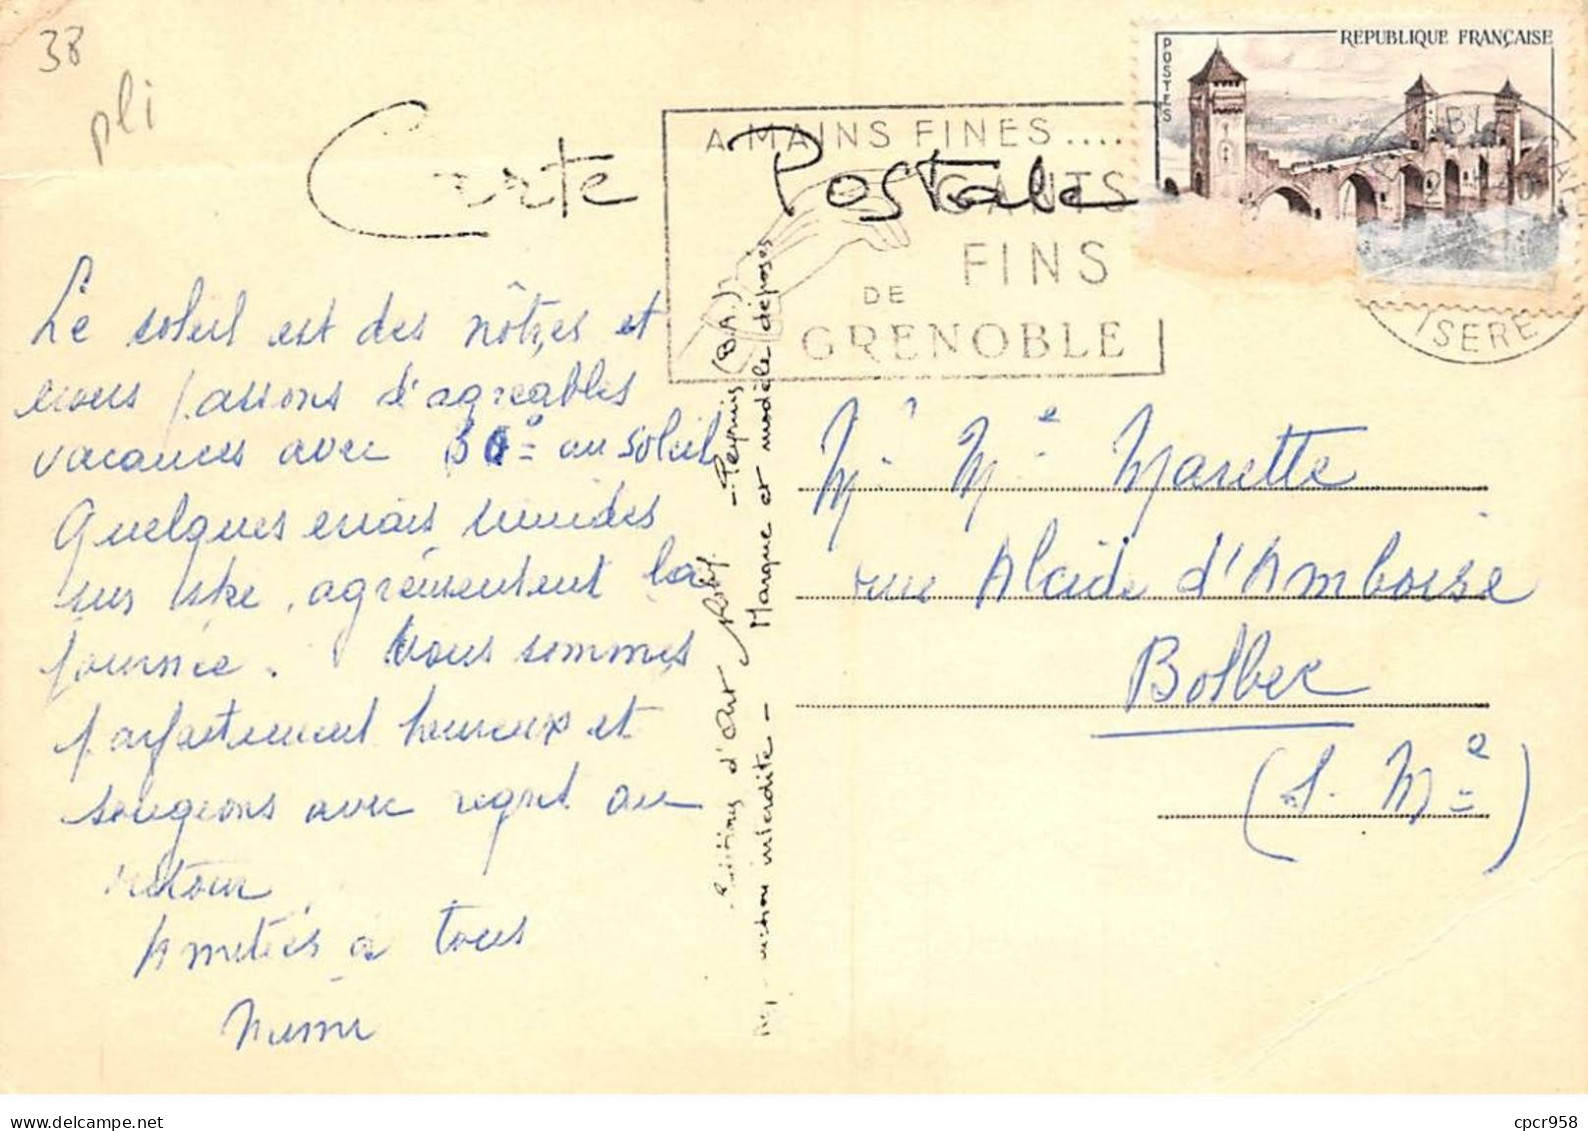 38
pli
Carte Postale
A MAINS FINES....
GANTS
FINS
DE
GRENOBLE
REPUBLIQUE FRANÇAISE
POSTES
ISERE
Le soleil est des nôtres et
nous passons d'agreables
vacances avec 30° au soleil
Quelques essais timides
sur ski, agrémentent la
journée. Nous sommes
parfaitement heureux et
songeons avec regret au
retour
Amitiés à tous
Mimi
Editions d'Art - Peyruis (B.A.)
interdite - Marque et modèle déposés
Mr Me Marette
rue Alcide d'Amboise
Bolbec
(S. Me)
cpcr958